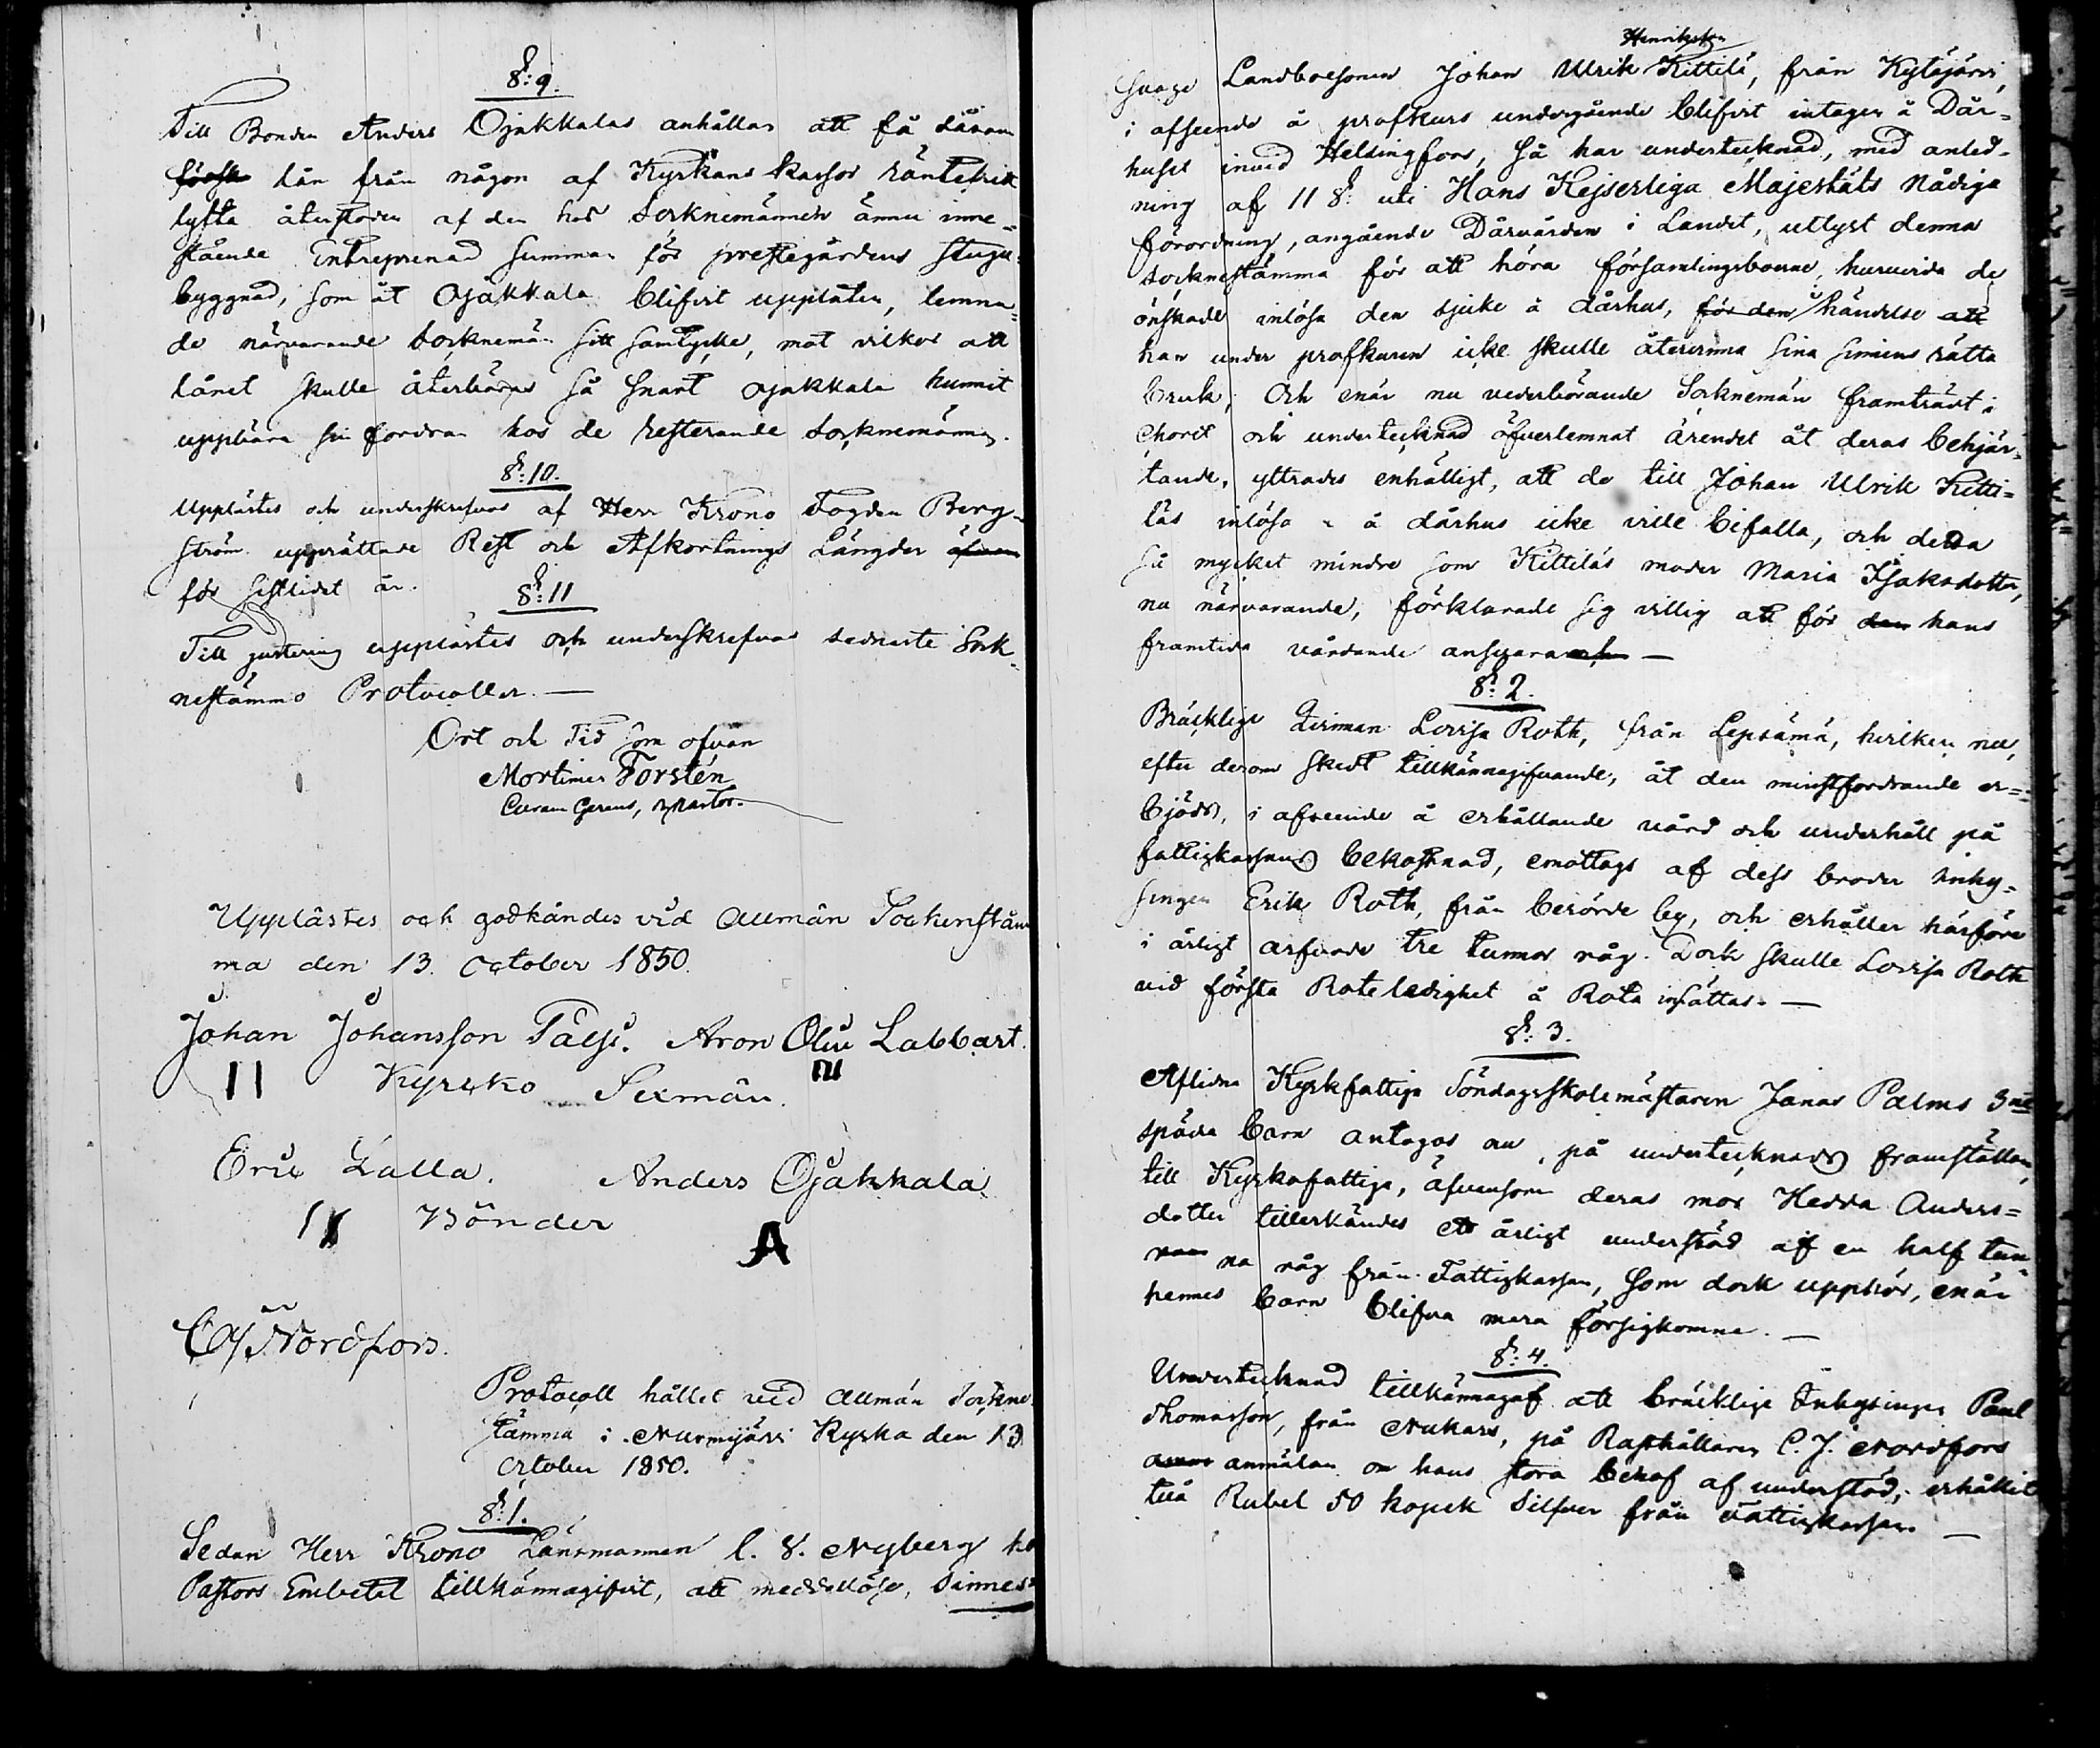 §: 9.
Till Bonden Anders Ojakkalas anhållan att få såsom
lån från någon af Kyrkans kassor räntefritt
lyfta återstoden af den hos Socknemännen ännu inne=
stående Entreprenad summan för prestegårdens stugu=
byggnad, som åt Ojakkala blifvit upplåten, lemna=
de närvarande Socknemän sitt samtycke, mot vilkor att
lånet skulle återbäras så snart Ojakkala hunnit
uppbära sin fordran hos de resterande Socknemännen.
§: 10.
Upplästes och underskrefvos af Herr Krono Fogden Berg=
ström upprättade Rest och Afkortnings Längder
för sistlidet år.
§: 11
Till justering upplästes och underskrefvos sednaste Sock=
nestämmo Protocoller. —
Ort och Tid som ofvan
Mortimer Forstén
Curam Gerens, v. pastor.
Upplästes och godkändes vid Allmän Sockenstäm
ma den 13. October 1850.
Johan Johansson Pälsi. Aron Olli Labbart.
Kyrcko Sexmän.
Eric Lalla. Anders Ojakkala
Bönder
A
C J Nordfors.
Protocoll hållet vid Allmän Sockne
stämma i Nurmijärvi Kyrka den 13
October 1850.
§: 1.
Sedan Herr Krono Länsmannen C. G. Nyberg hos
Pastors Embetet tillkännagifvit, att medellöse, Sinnes=
Henriksson
svage Landboesonen Johan Ulrik Kittilä, från Kytäjärvi,
i afseende å profkurs undergående blifvit intagen å Dår=
huset invid Helsingfors, så har undertecknad, med anled=
ning af 11 §: uti Hans Kejserliga Majestäts Nådiga
förordning, angående Dårvården i Landet, utlyst denna
Socknestämma för att höra församlingsboerne, huruvida de
önskade inlösa den sjuke å dårhus, för den i händelse att
han under profkuren icke skulle återvinna sina sinnens rätta
bruk; Och enär nu vederbörande Socknemän framträdt i
choret och undertecknad öfverlemnat ärendet åt deras behjär=
tande, yttrades enhälligt, att de till Johan Ulrik Kitti=
läs inlösa å dårhus icke ville bifalla, och detta
så mycket mindre som Kittiläs moder Maria Isaksdotter,
nu närvarande, förklarade sig villig att för den hans
framtida vårdande ansvara —
§: 2.
Bräcklige Lovisa Roth, från Lepsämä, hvilken nu,
efter derom skedt tillkännagifvande, åt den minstfordrande er=
bjöds, i afseende å erhållande vård och underhåll på
fattigkassans bekostnad, emottogs af dess broder Inhy=
singen Erik Roth, från berörde by, och erhåller härföre
i årligt arfvode tre tunnor råg. Dock skulle Lovisa Roth
vid första Roteledighet å Rota insättas. —
§: 3.
Aflidne Kyrkfattige Söndagsskolemästaren Jonas Palms 3ne
späda barn antogos nu, på undertecknads framställan,
till Kyrkofattige, äfvensom deras mor Hedda Anders=
dotter tillerkändes ett årligt understöd af en half tun=
na råg från Fattigkassan, som dock upphör, enär
hennes barn blifva mera försigkomne. —
§: 4.
Undertecknad tillkännagaf att bräcklige Inhysingen Paul
Thomasson, från Nukars, på Rusthållaren C. J. Nordfors
anmälan om hans stora behof af understöd, erhållit
två Rubel 50 kopek Silfver från Fattigkassan —